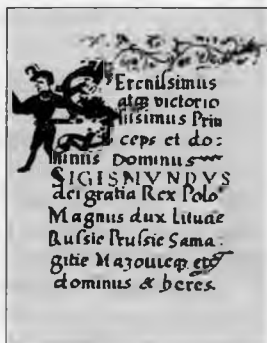 Sereniſsimus
atqȝ victorio
ſiſsimus Prin
ceps et do:
minus Dominus
SIGISMVNDVS
dei gratia Rex Polo
Magnus dux Lituae
Ruſsie Pruſsie Sama:
gitie Mazouieqȝ etc
dominus & heres